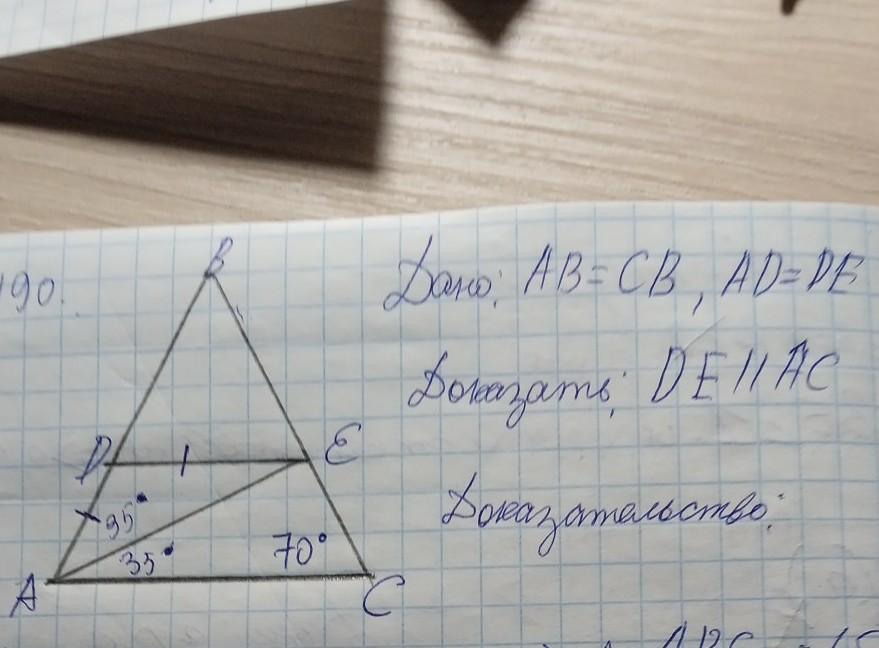 B
190.
Дано: AB = CB, AD = DE
Доказать: DE || AC
D E
Доказательство:
35°
35° 70°
A C